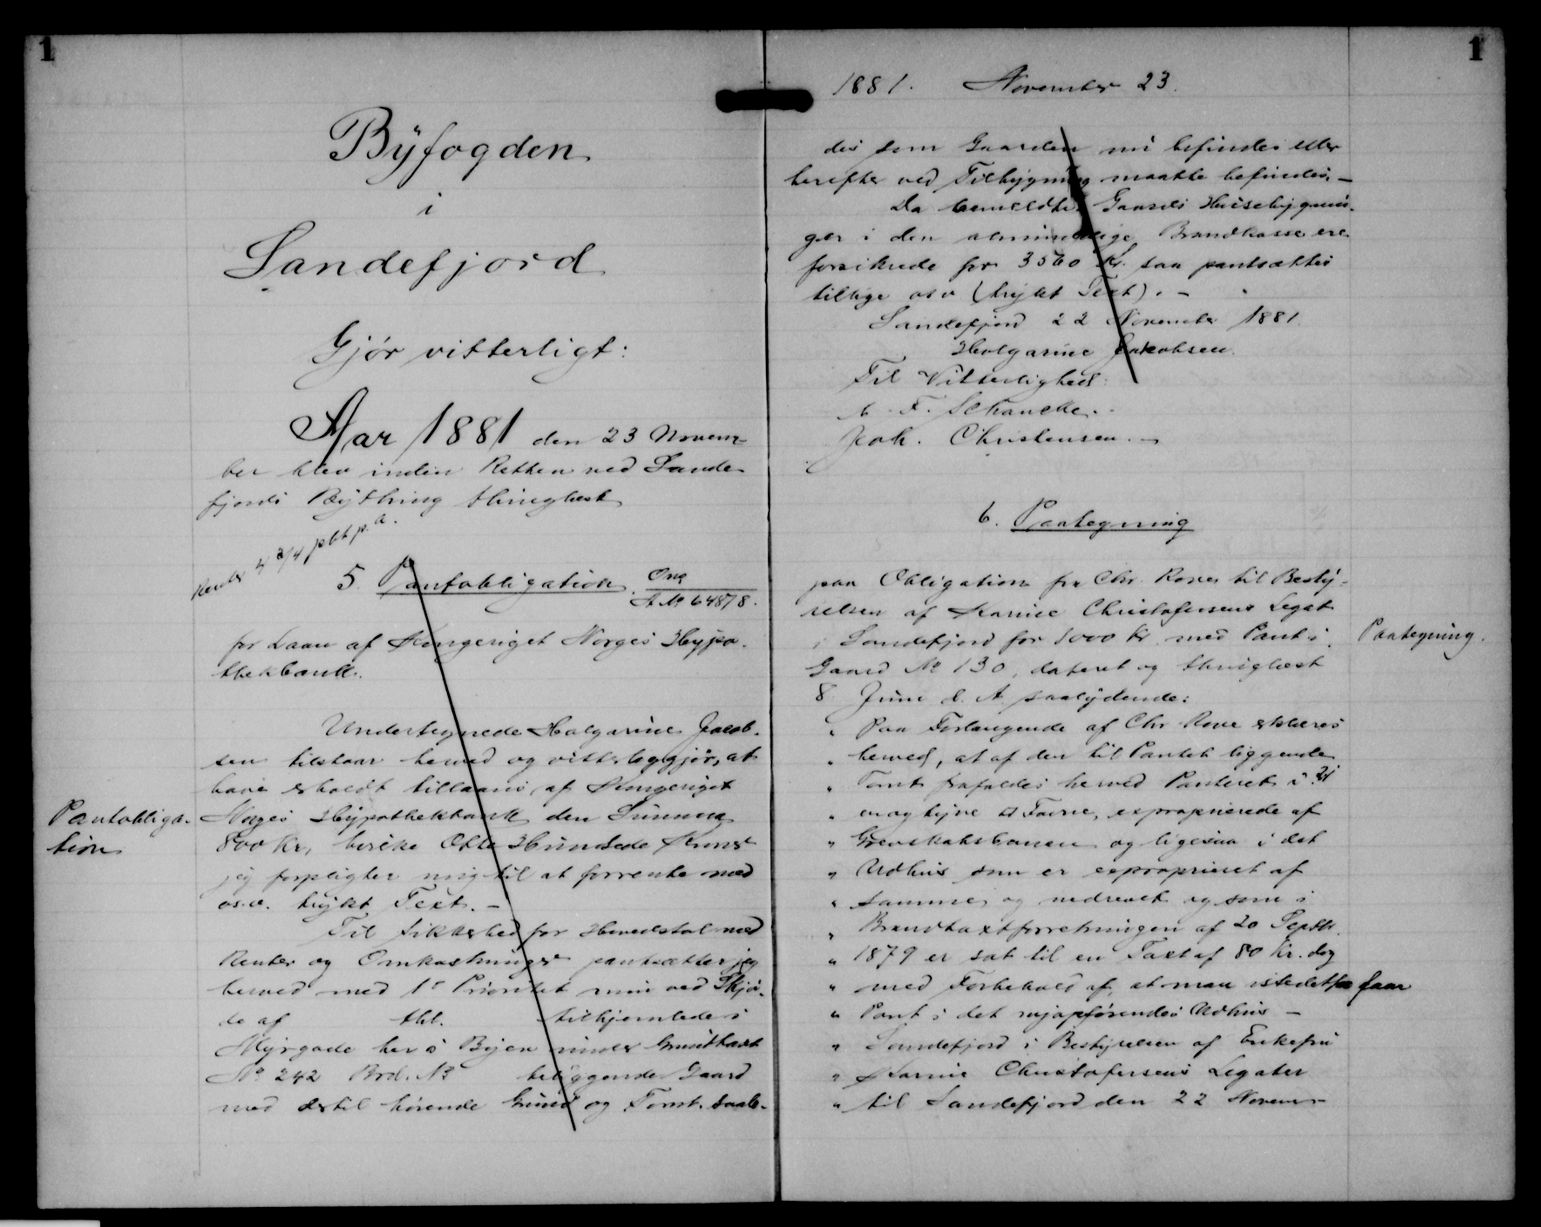 1
Byfogden
i
Sandefjord
Gjör vitterligt:
Aar 1881 den 23 Novem-
ber blev inden Retten ved Sande-
fjords Bything thinglæst
Renter 4 3/4 pCt p. a.
5. Pantobligation. Omg
A. No 64878.
for Laan af Kongeriget Norges Hypo-
thekbank.
Undertegnede Holgarine Jacob-
sen tilstaar herved og vitterliggjör, at
have erholdt tillaans af Kongeriget
Pantobliga-
tion
Norges Hypothekbank den Summa
800 Kr, skrive Otte Hundrede Kroner
jeg forpligter mig til at forrente med
os.v. trykt Text. -
Til Sikkerhed for Hovedstol med
Renter og Omkostninger pantsætter jeg
herved med 1ste Prioritet min ved Skjö-
de af thl. tilhjemlede i
Myrgade her i Byen under Grundtaxt
No 242 Brd. No beliggende Gaard
med dertil hörende Grund og Tomt saale-
1
1881. November 23.
des som Gaarden nu befindes eller
herefter ved Tilbygning maatte befindes. -
Da bemeldte Gaards Husebygnin-
ger i den almindelige Brandkasse ere
forsikrede for 3560 Kr. saa pantsættes
tillige osv (trykt Text). -
Sandefjord 22 November 1881.
Holgarine Jakobsen.
Til Vitterlighed:
F. Schancke.
Joh. Christensen. -
6. Paategning
paa Obligation fra Chr. Rove til Besty-
relsen af Karine Christofersens Legat
i Sandefjord for 1000 Kr. med Pant i
Paategning.
Gaard No 130, dateret og thinglæst
8 Juni d. A. saalydende:
" Paa Forlangende af Chr Rove erklæres
" herved, at af den til Pantet liggende
" Tomt frafaldes herved Panteret i 21
" en og tyve □ Favne, exproprierede af
" Grevskabsbanen og ligesaa i det
" Udhus som er exproprieret af
" samme, og nedrevet og som i
" Brandtaxtforretningen af 20 Septbr.
" 1879 er sat til en Taxt af 80 Kr. dog
" med Forbehold af, at man istedetfor faar
" Pant i det nyopförendes Udhus -
" Sandefjord i Bestyrelsen af Enkefru
" Karine Christofersens Legater
" til Sandefjord den 22 Novem-